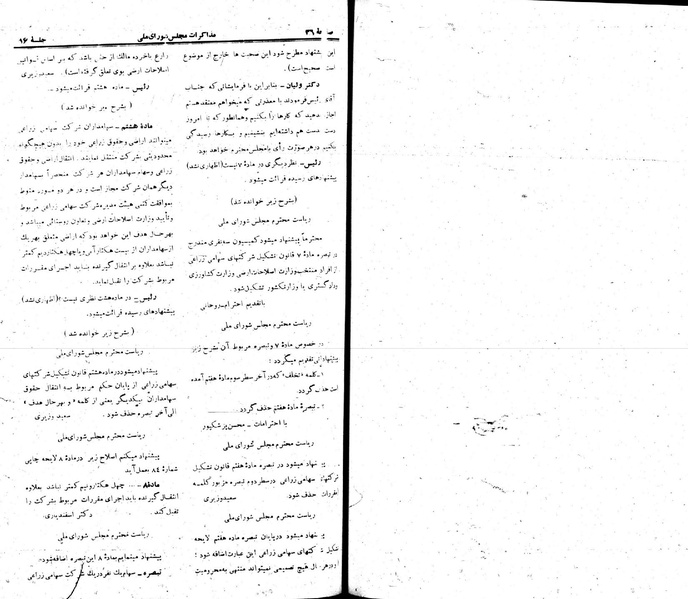 صفحهٔ ۳۶
مذاکرات مجلس شورای ملی
جلسهٔ ۹۶
این پیشنهاد مطرح شود این صحبت ها خارج از موضوع
است صحیح است).
دکتر ولیان - بنابراین با فرمایشاتی که جناب
آقای رئیس فرمودند با معذرتی که میخواهم معتقد هستم
اجازه دهید که کارها را بکنیم و همانطور که تا امروز
دست بدست هم داشته‌ایم بنشینیم و بکارها رسیدگی
بکنیم در هر صورت رأی با مجلس محترم خواهد بود.
رئیس - نظر دیگری در مادهٔ ۷ نیست؟ (اظهاری نشد)
پیشنهادهای رسیده قرائت میشود.
(بشرح زیر خوانده شد)
ریاست محترم مجلس شورای ملی
محترماً پیشنهاد میشود کمیسیون سه نفری مندرج
در تبصره مادهٔ ۷ قانون تشکیل شرکتهای سهامی زراعی
از افراد منتخب وزارت اصلاحات ارضی وزارت کشاورزی
و دادگستری یا وزارت کشور تشکیل شود.
با تقدیم احترام - روحانی
ریاست محترم مجلس شورای ملی
در خصوص مادهٔ ۷ و تبصره مربوط آن بشرح زیر
پیشنهاداتی تقدیم میگردد:
۱- کلمه «تخلف» که در آخر سطر سوم مادهٔ هفتم آمده
است حذف گردد.
۲- تبصرهٔ مادهٔ هفتم حذف گردد.
با احترامات - محسن پزشکپور
ریاست محترم مجلس شورای ملی
پیشنهاد میشود در تبصره مادهٔ هفتم قانون تشکیل
شرکتهای سهامی زراعی در سطر دوم تبصره مزبور کلمه
مقررات حذف شود. سعید وزیری
ریاست محترم مجلس شورای ملی
پیشنهاد میشود در پایان تبصره ماده هفتم لایحه
تشکیل شرکتهای سهامی زراعی این عبارت اضافه شود:
و در هر حال هیچ تصمیمی نمیتواند منتهی به محرومیت
زارع یا خرده مالک از حقی باشد که بر اساس قوانین
اصلاحات ارضی بوی تعلق گرفته است). سعید وزیری
رئیس - مادهٔ هشتم قرائت میشود.
(بشرح زیر خوانده شد)
مادهٔ هشتم - سهامداران شرکت سهامی زراعی
میتوانند اراضی و حقوق زراعی خود را بدون هیچگونه
محدودیتی بشرکت منتقل نمایند. انتقال اراضی و حقوق
زراعی و سهام سهامداران هر شرکت منحصراً بسهامدار
دیگر همان شرکت مجاز است و در هر دو صورت منوط
بموافقت کتبی هیئت مدیره شرکت سهامی زراعی مربوط
و تأیید وزارت اصلاحات ارضی و تعاون روستائی میباشد و
بهر حال هدف این خواهد بود که اراضی متعلق بهر یک
از سهامداران از بیست هکتار آبی و یا چهل هکتار دیم کمتر
نباشد بعلاوه بر انتقال گیرنده باید اجرای مقررات
مربوط بشرکت را تقبل نماید.
رئیس - در ماده هشت نظری نیست؟ (اظهاری نشد)
پیشنهادهای رسیده قرائت میشود.
(بشرح زیر خوانده شد)
ریاست محترم مجلس شورای ملی
پیشنهاد میشود در ماده هشتم قانون تشکیل شرکتهای
سهامی زراعی از پایان حکم مربوط به انتقال حقوق
سهامداران بیکدیگر یعنی از کلمه «و بهر حال هدف»
الی آخر تبصره حذف شود. سعید وزیری
ریاست محترم مجلس شورای ملی
پیشنهاد میکنم اصلاح زیر در مادهٔ ۸ لایحه چاپی
شمارهٔ ۸۴ بعمل آید.
ماده ۸ - ... چهل هکتار دیم کمتر نباشد بعلاوه
انتقال گیرنده باید اجرای مقررات مربوط بشرکت را
تقبل کند. دکتر اسفندیاری
ریاست محترم مجلس شورای ملی
پیشنهاد مینمایم بمادهٔ ۸ این تبصره اضافه شود:
تبصره - سهام یک نفر در یک شرکت سهامی زراعی